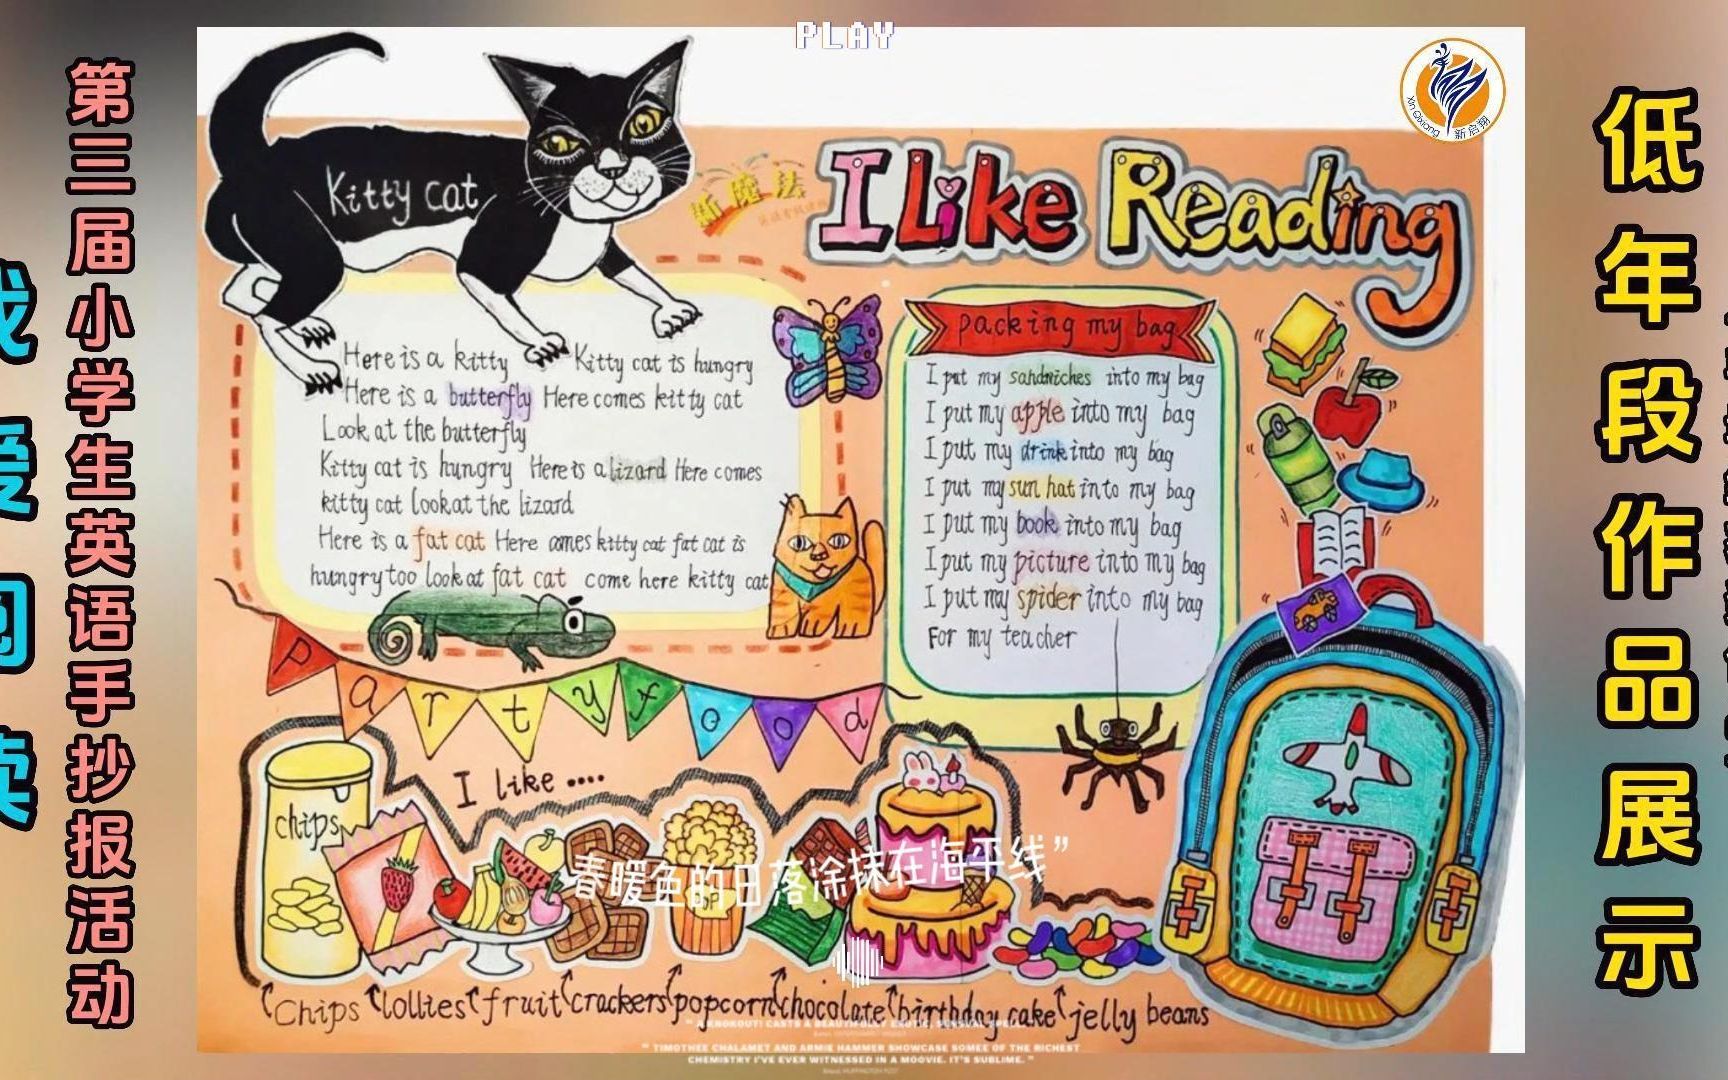 PLAY
我爱阅读
第三届小学生英语手抄报活动
低年段作品展示
Xin Qixiang 新启翔
Kitty cat
新魔法
I Like Reading
Here is a kitty Kitty cat is hungry
Here is a butterfly Here comes kitty cat
Look at the butterfly
Kitty cat is hungry Here is a lizard Here comes
kitty cat look at the lizard
Here is a fat cat Here comes kitty cat fat cat is
hungry too look at fat cat come here kitty cat
packing my bag
I put my sandwiches into my bag
I put my apple into my bag
I put my drink into my bag
I put my sun hat into my bag
I put my book into my bag
I put my picture into my bag
I put my spider into my bag
For my teacher
Party food
I like ....
chips
春暖色的日落涂抹在海平线”
Chips lollies fruit crackers popcorn chocolate birthday cake jelly beans
" A KNOKOUT! CASTS A BEAUTIFULLY EXOTIC, SENSUAL SPELL
" TIMOTHEE CHALAMET AND ARMIE HAMMER SHOWCASE SOMEE OF THE RICHEST
CHEMISTRY I'VE EVER WITNESSED IN A MOOVIE. IT'S SUBLIME. "